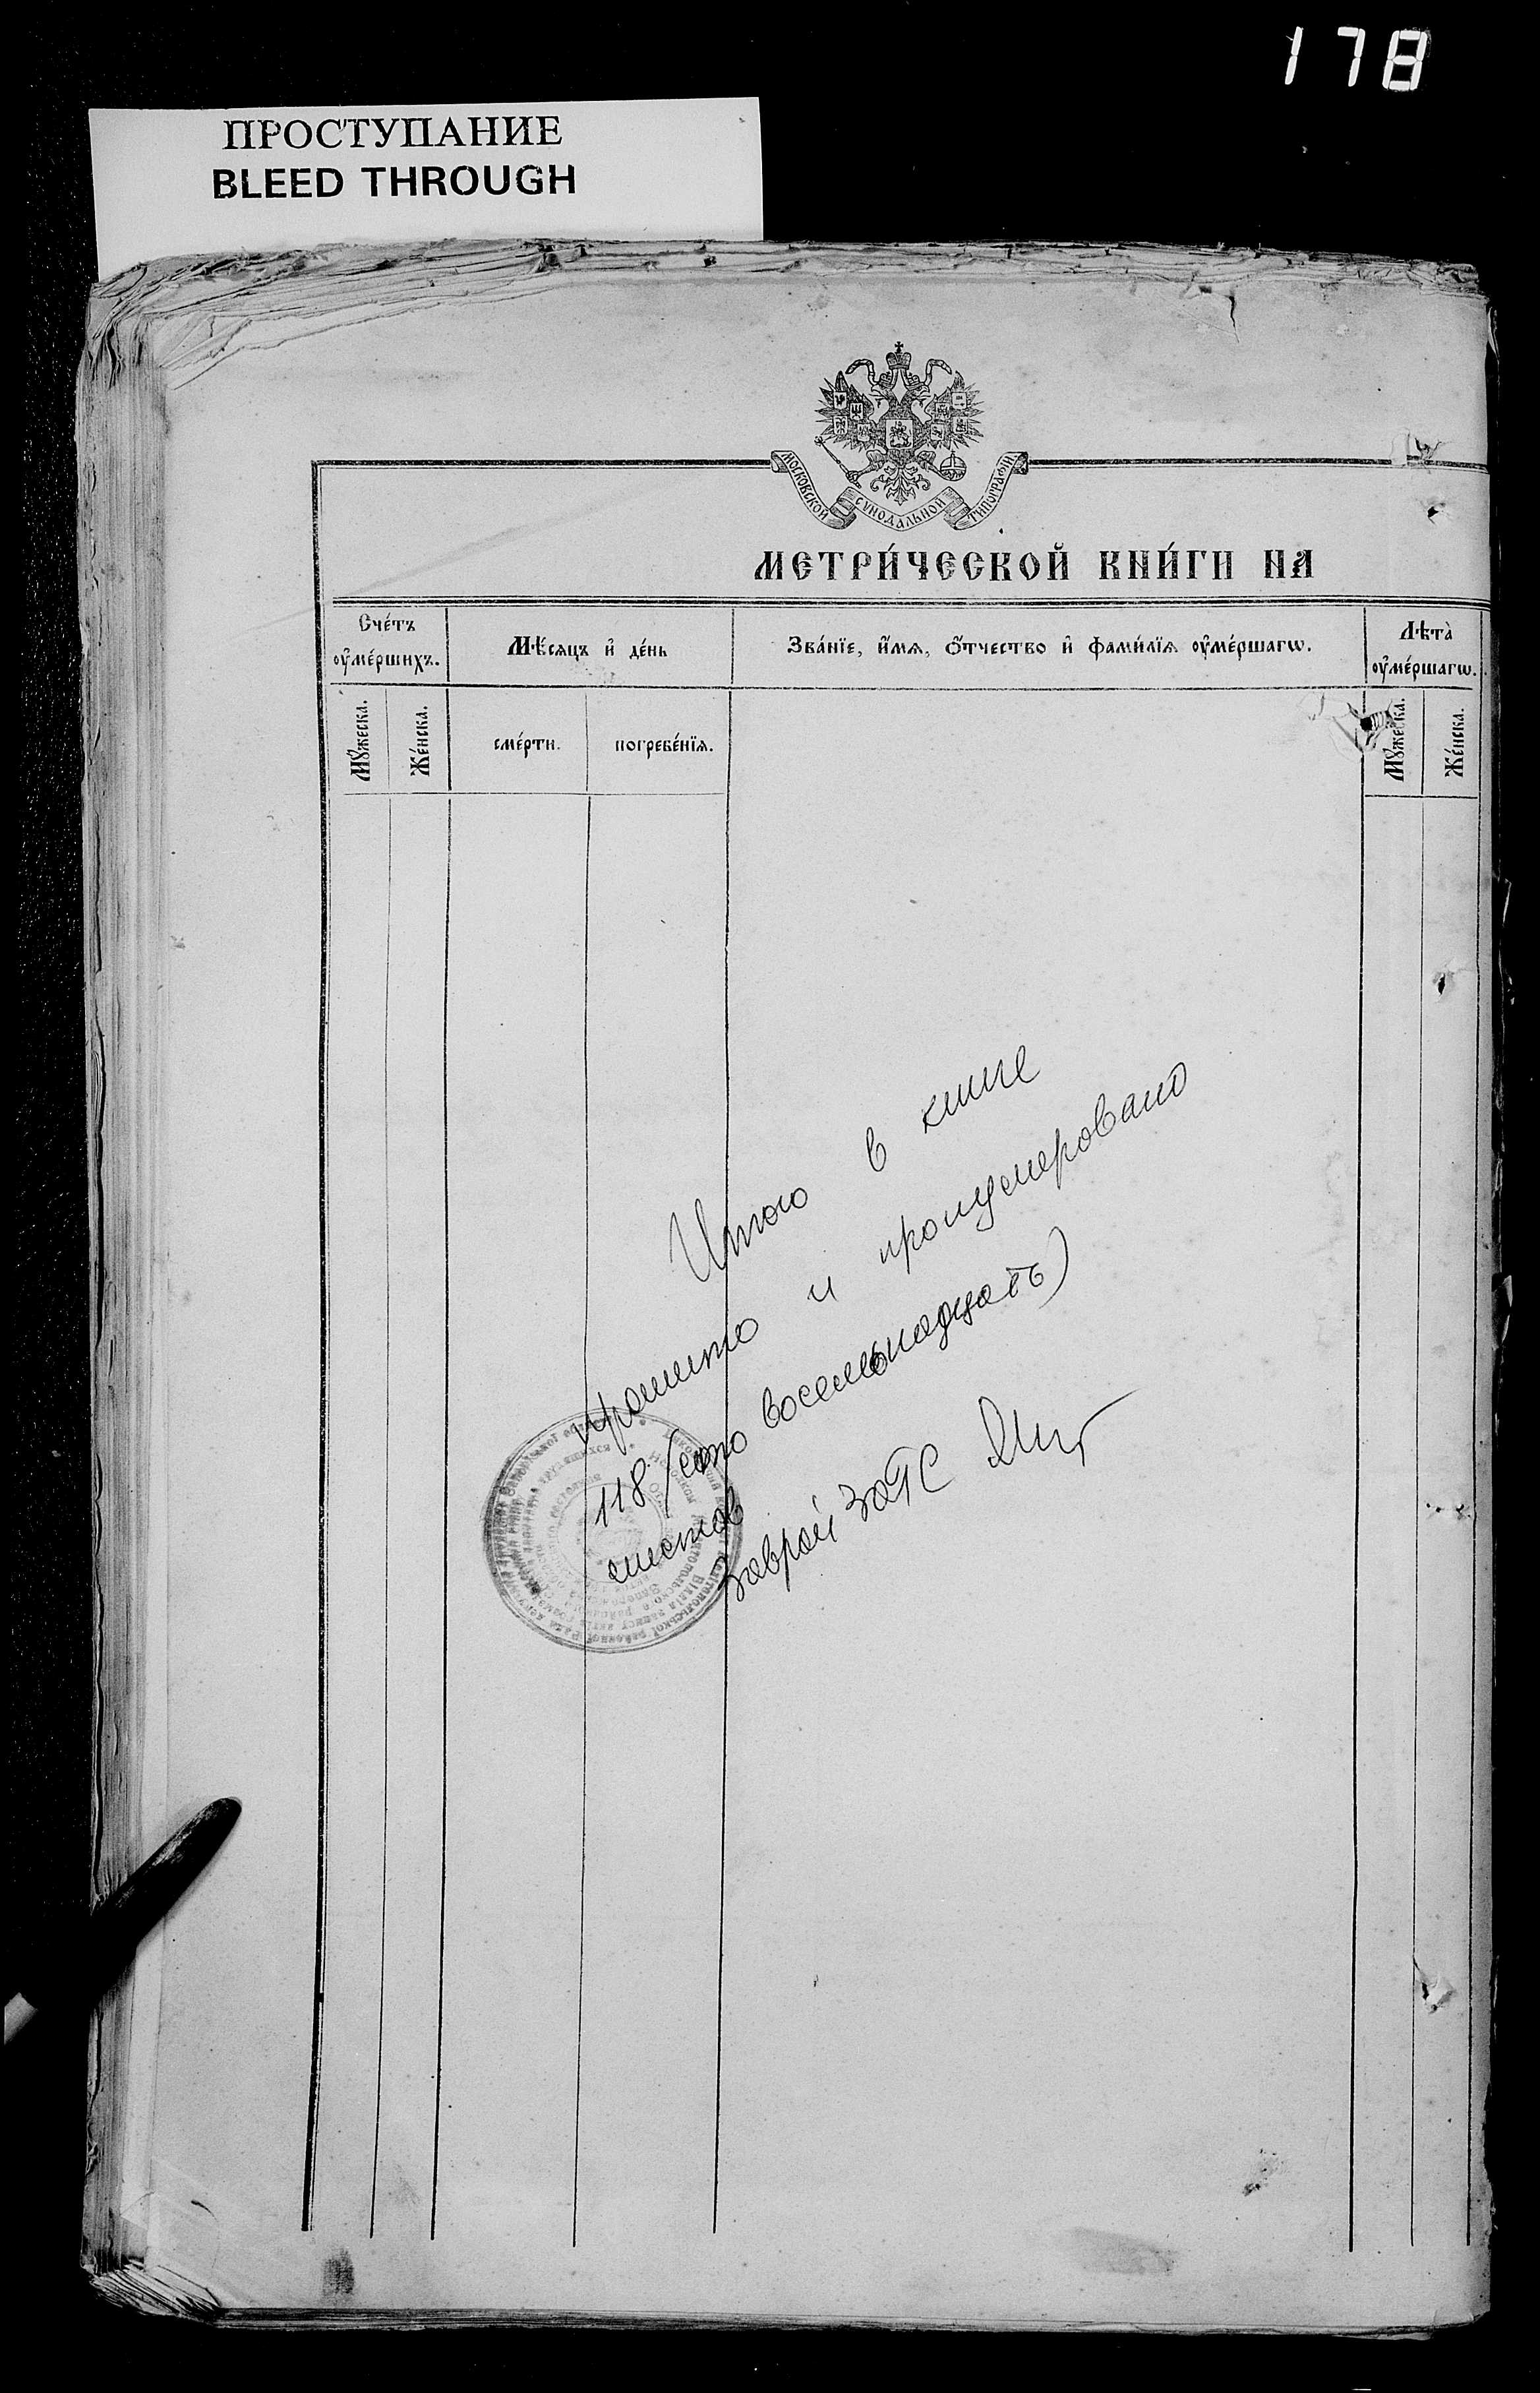 178
ПРОСТУПАНИЕ
BLEED THROUGH
МОСКОВСКОЙ СѴНОДАЛЬНОЙ ТИПОГРАФІИ
МЕТРИ́ЧЕСКОЙ КНИ́ГИ НА
Сче́тъ ᲂу҆ме́ршихъ.
Мѣ́сяцъ и҆ де́нь
Зва́нїе, и҆́мѧ, ѻ҆́тчество и҆ фами́лїѧ ᲂу҆ме́ршагѡ.
Лѣта̀ ᲂу҆ме́ршагѡ.
Мꙋ́жеска.
Же́нска.
сме́рти.
погребе́нїѧ.
Мꙋ́жеска.
Же́нска.
Итого в книге
прошито и пронумеровано
118 (сто восемьнадцать)
листов
Заврай ЗАГС